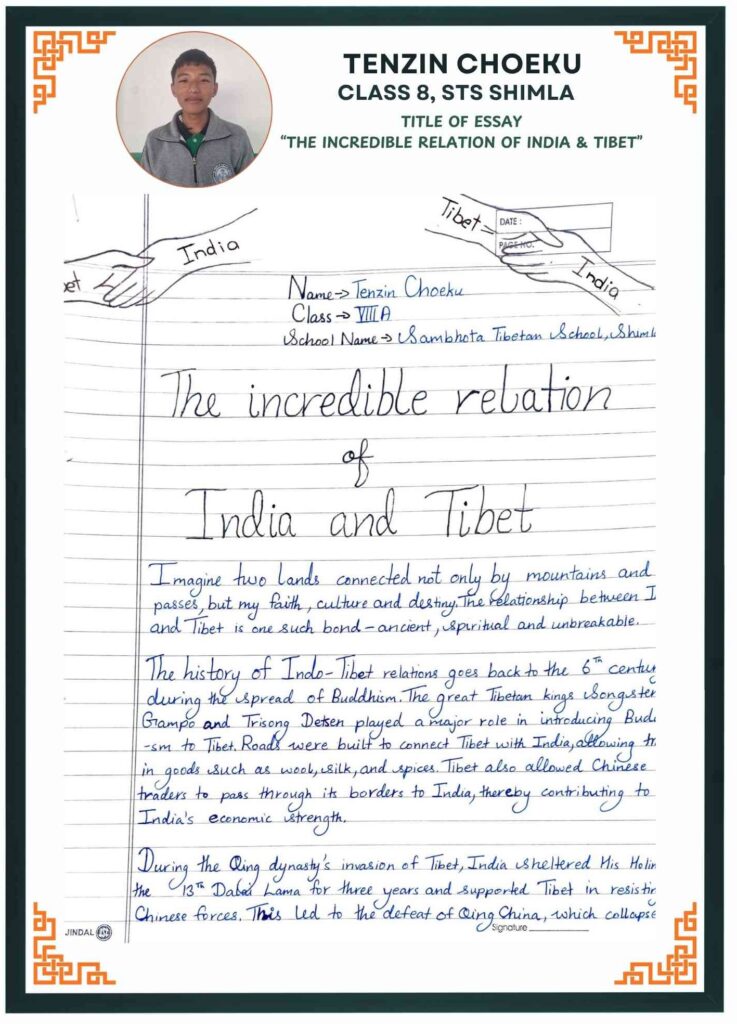 TENZIN CHOEKU
CLASS 8, STS SHIMLA
TITLE OF ESSAY
"THE INCREDIBLE RELATION OF INDIA & TIBET"
India
Tibet
DATE :
PAGE NO.
India
Name→ Tenzin Choeku
Class→ VIII A
School Name→ Sambhota Tibetan School, Shiml
The incredible relation
of
India and Tibet
Imagine two lands connected not only by mountains and
passes, but my faith, culture and destiny. The relationship between I
and Tibet is one such bond - ancient, spiritual and unbreakable.
The history of Indo-Tibet relations goes back to the 6th centur
during the spread of Buddhism. The great Tibetan kings Songster
Gampo and Trisong Detsen played a major role in introducing Bud
-sm to Tibet. Roads were built to connect Tibet with India, allowing tr
in goods such as wool, silk, and spices. Tibet also allowed Chinese
traders to pass through its borders to India, thereby contributing to
India's economic strength.
During the Qing dynasty's invasion of Tibet, India sheltered His Holin
the 13th Dalai Lama for three years and supported Tibet in resistin
Chinese forces. This led to the defeat of Qing China, which collapse
JINDAL
Signature